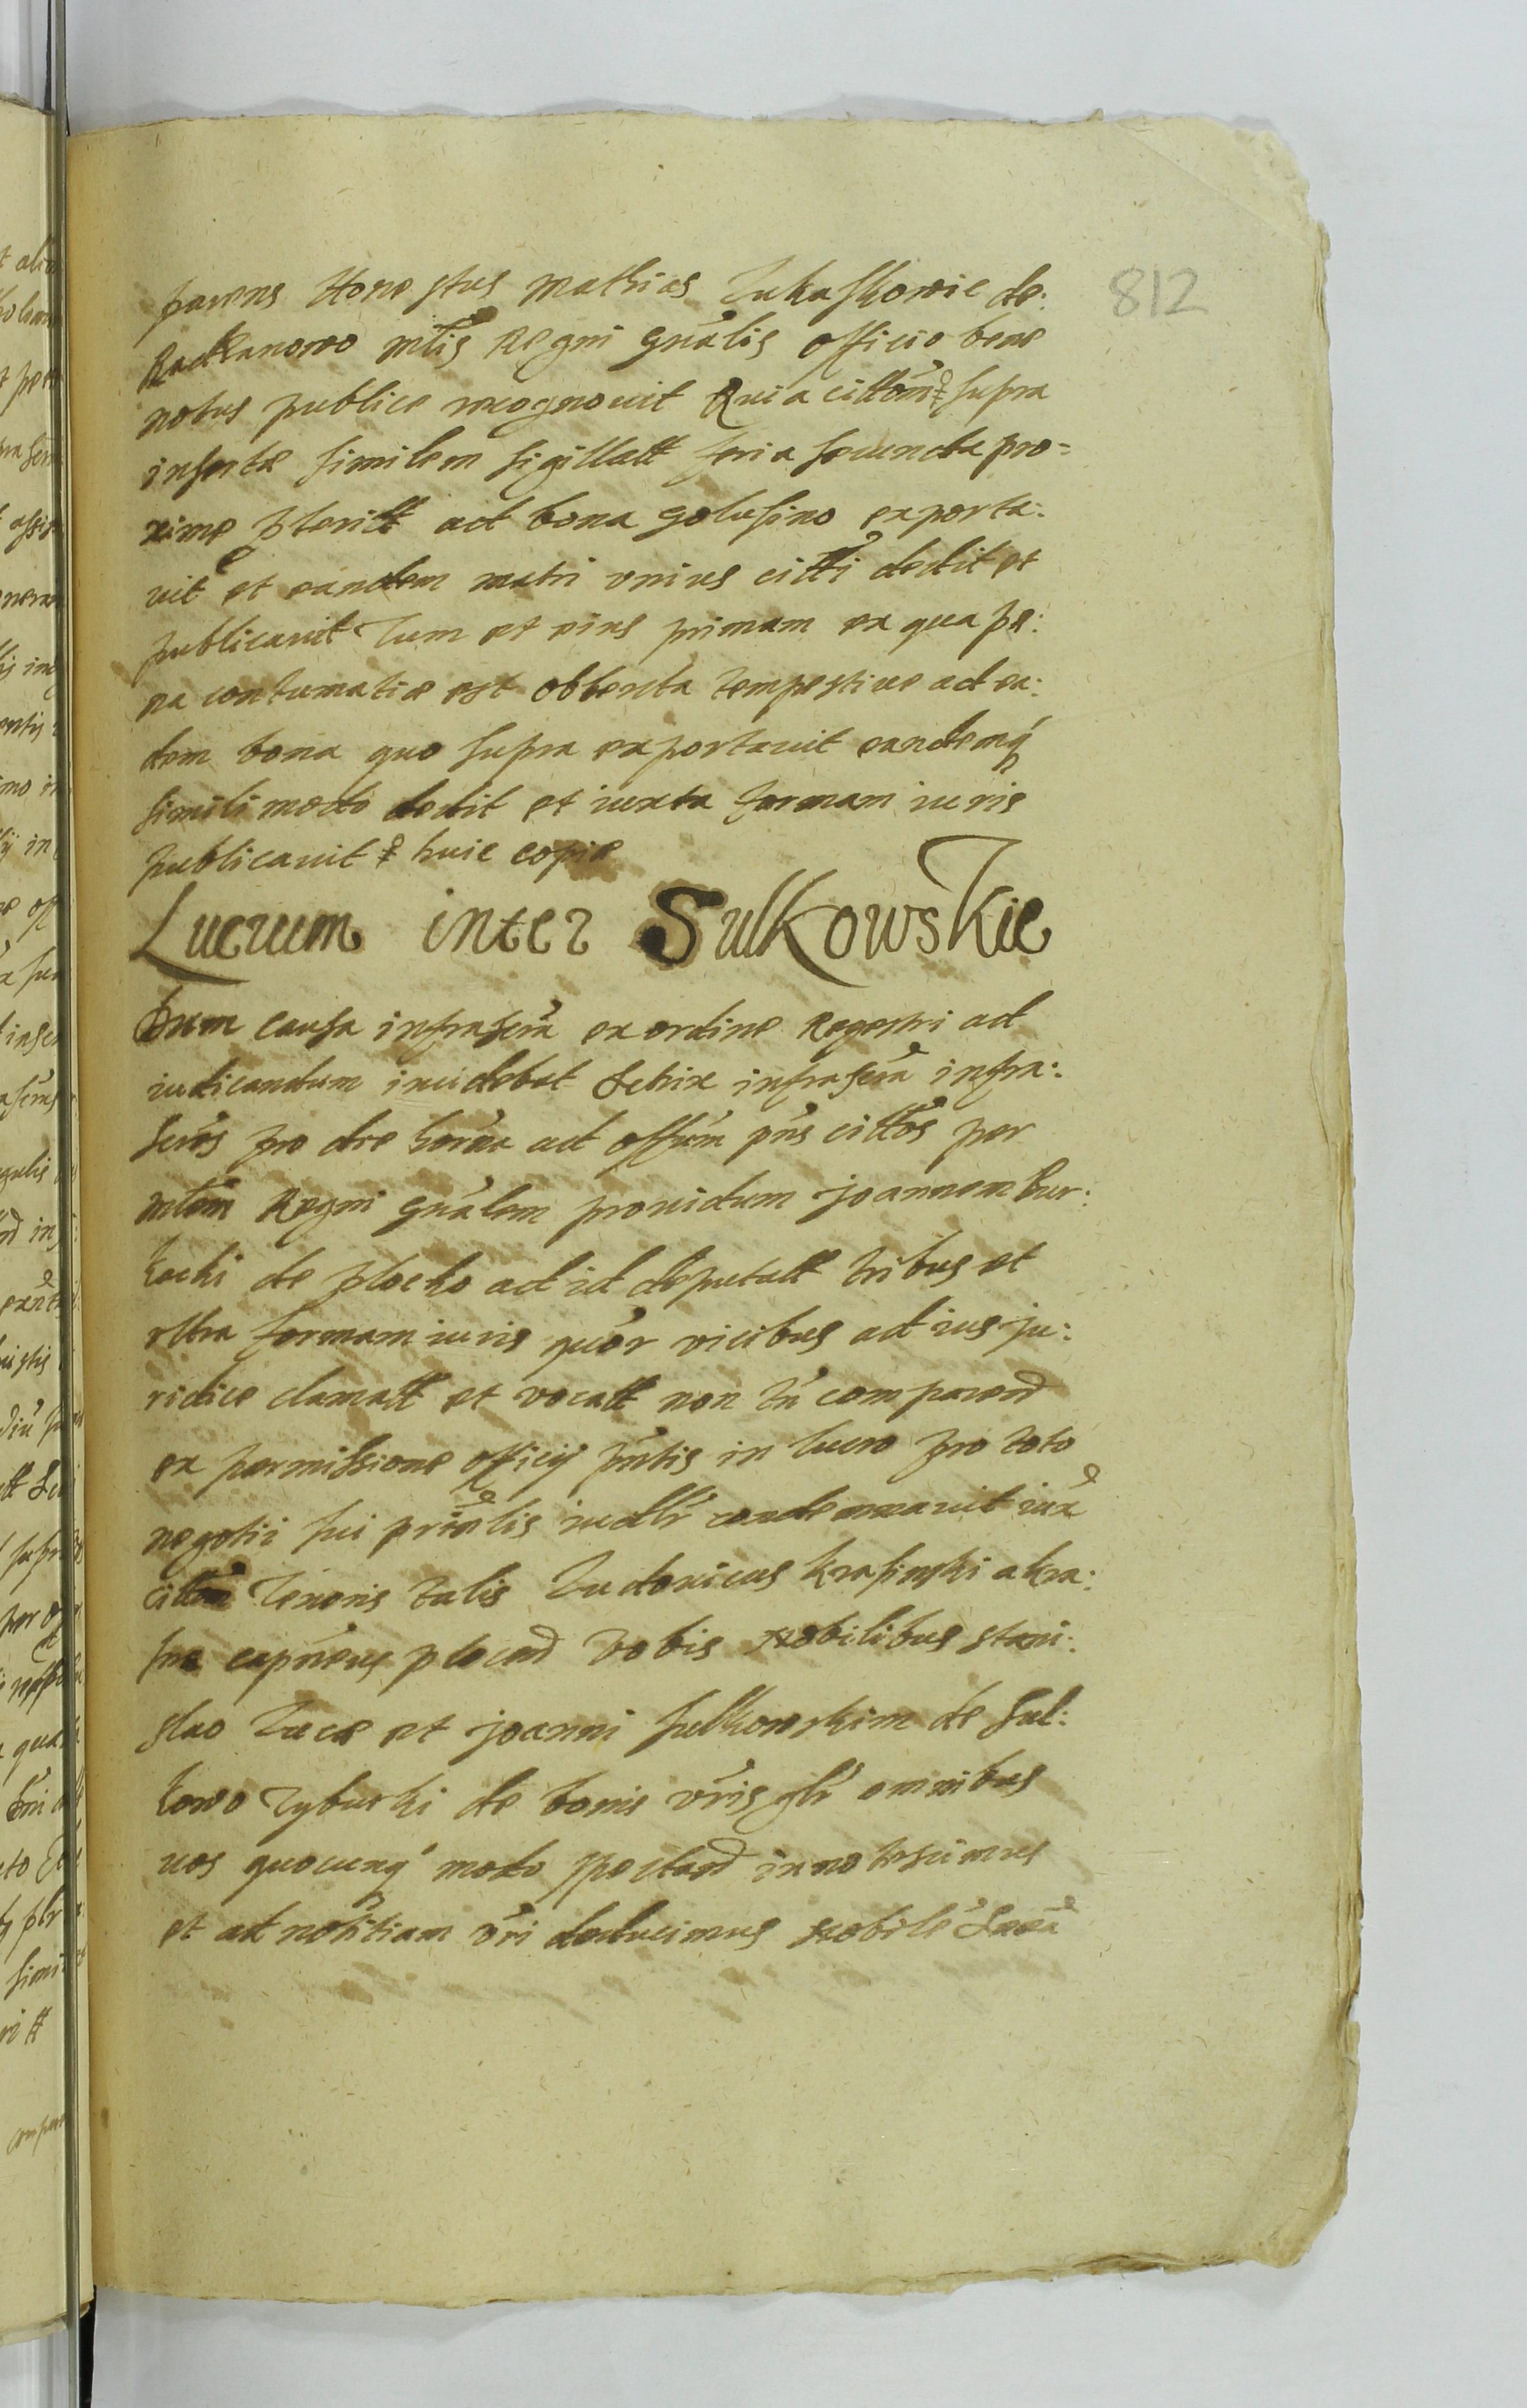 812
parens Honestus Mathias Lukaskowic de:
Radzanowo mtis Regni gnalis officio bene
notus publice recognovit Quia cittōm supra
insertæ similem sigillatt feria secunda pro=
xime pteritt ad bona Golusino exporta:
vit et eandem matri unius citti dedit et
publicavit Tum et eius primam ex qua pe:
na contumatiæ est obtenta tempestive ad ea:
dem bona quo supra exportavit eandemq
simili modo dedit et iuxta formam iuris
publicavit huic copiæ
Lucrum inter Sulkowskie
Dum causa infrascra ex ordine Regestri ad
iudicandum incidebat Actrix infrascra infra:
scros pro die horna ad offum pns cittos per
mtem Regni gnalem providum Joannem Bur:
kacki de Plocko ad id deputatt tribus et
ultra formam iuris quor vicibus ad ius ju:
ridice clamatt et vocatt non tn comparend
ex permissione officij pntis in lucro pro toto
negotii sui prinlis iudlr condemnavit iux
cittm Tenoris talis Ludovicus Krasinski a Kra:
sne capneus plocend Vobis Nobilibus Stani:
slao Lucæ et Joanni Sulkowskim de Sul:
kowo Tyburki de bonis vris glr omnibus
vos quocunq modo spectand innotescimus
et ad notitiam vri deducimus Nobile